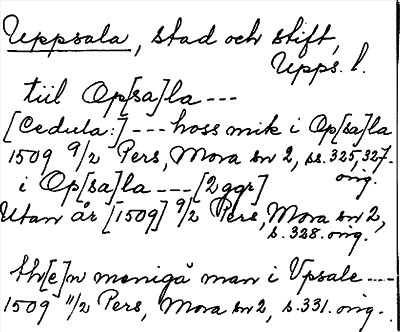 Uppsala, stad och stift,
Upps. l.
tiil Op[sa]la ---
[Cedula:] --- hoss mik i Op[sa]la
1509 9/2 Pers, Mora sn 2, ss. 325, 327.
orig.
i Op[sa]la --- [2 ggr]
Utan år [1509] 9/2 Pers, Mora sn 2,
s. 328. orig.
th[e]n menigå man i Vpsale ---
1509 11/2 Pers, Mora sn 2, s. 331. orig.